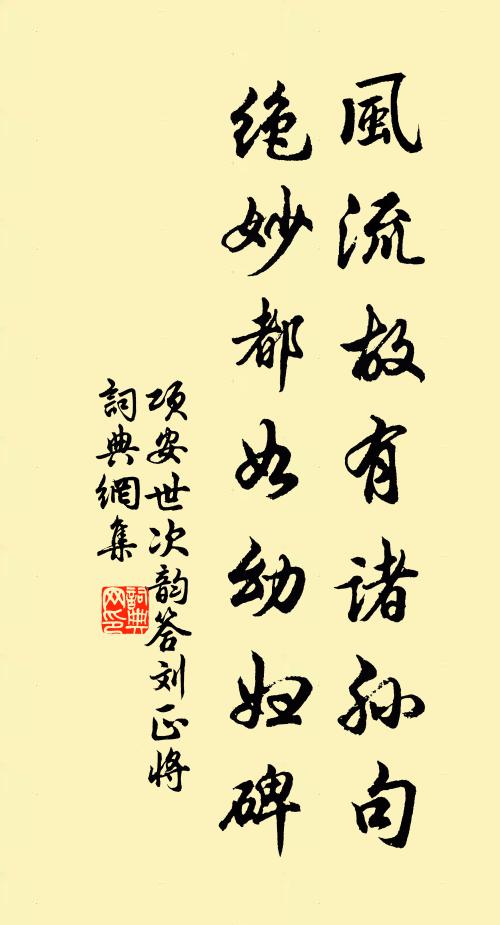 風流故有諸孙句
绝妙都如幼妇碑
项安世次韵答刘正将
詞典網集
詞典网印